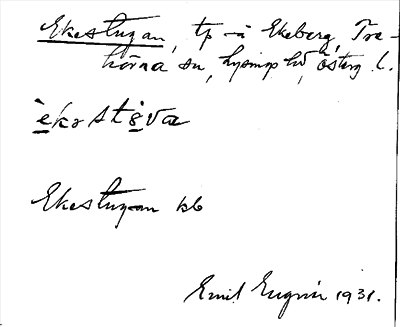 Ekestugan, tp å Ekeberg, Tre-
hörna sn, Lysings hd, Österg. l.
èkɷstɷ̀va
Ekestugan kb
Emil Engvin 1931.